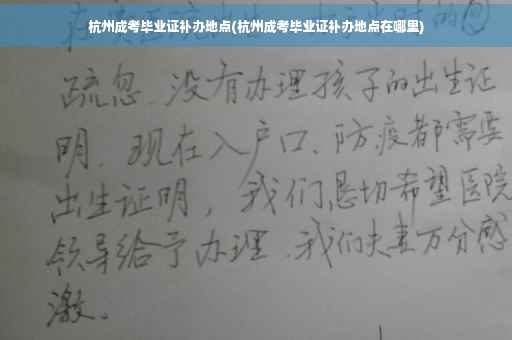 杭州成考毕业证补办地点(杭州成考毕业证补办地点在哪里)
疏忽、没有办理孩子的出生证
明、现在入户口、防疫都需要
出生证明，我们恳切希望医院
领导给予办理、我们夫妻万分感
激。